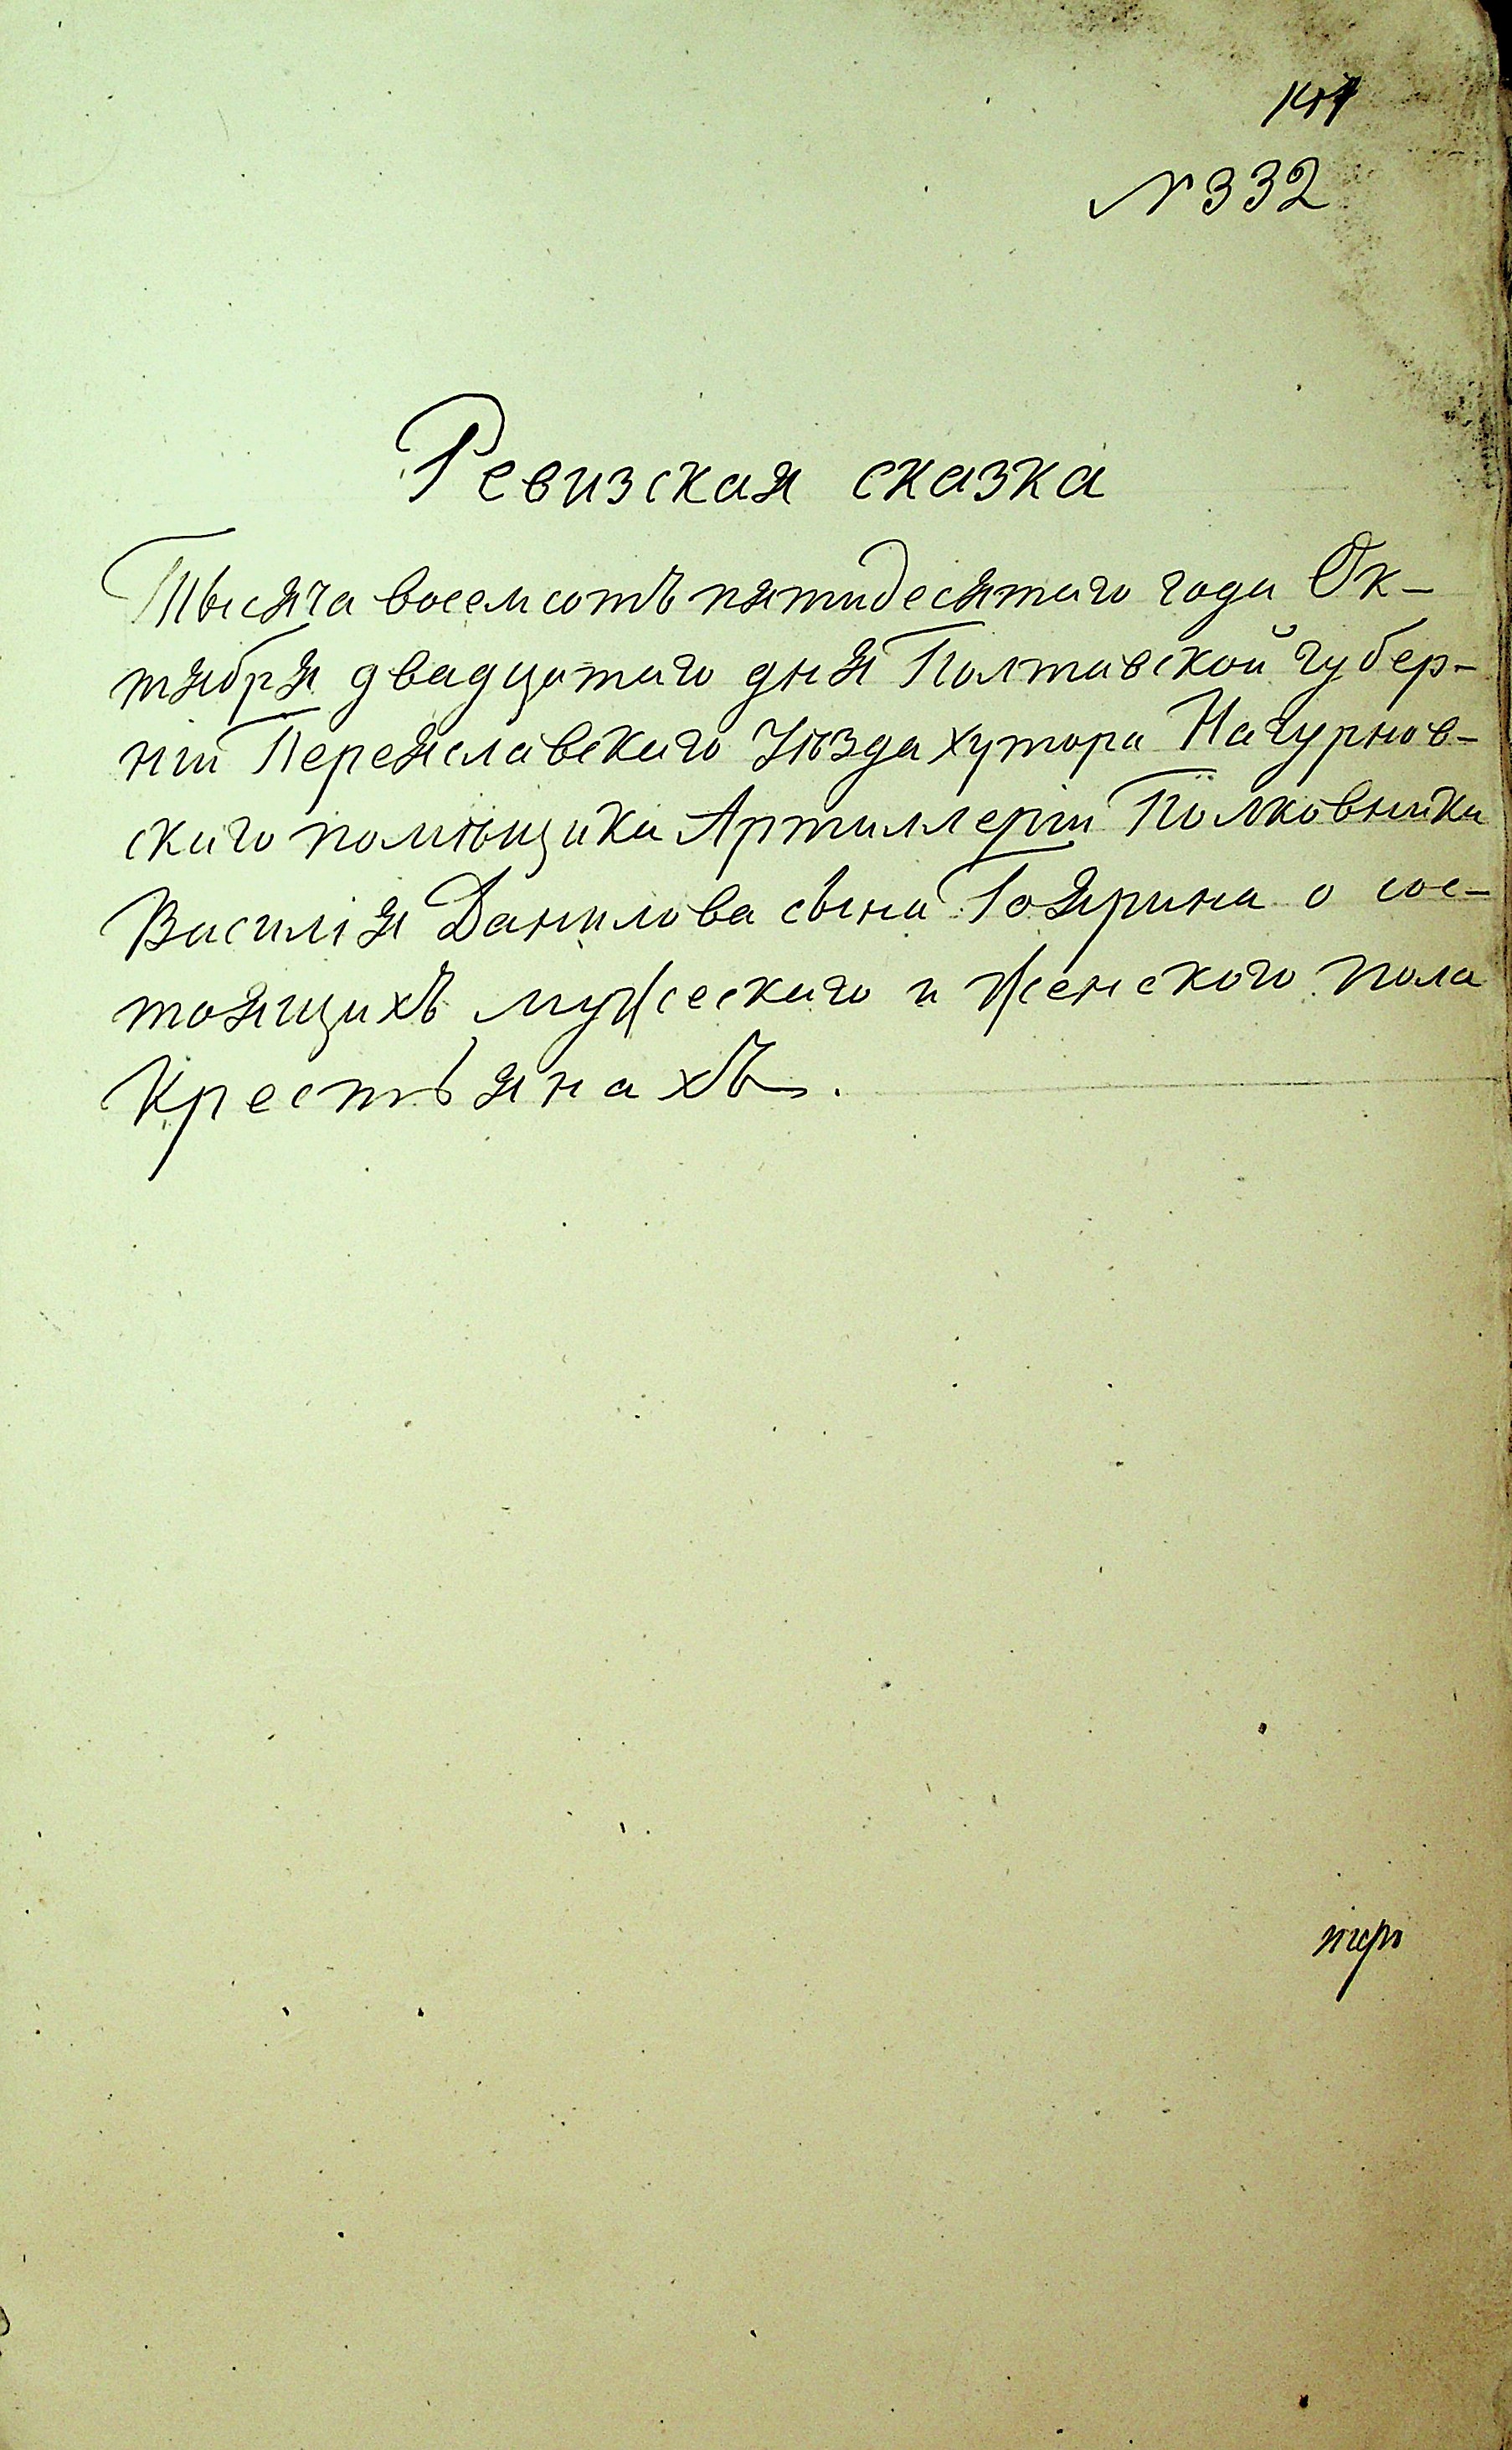 № 332
Ревизская сказка
Тысяча восемсотъ пятидесятаго года Ок-
тября двадцатаго дня Полтавской губер-
ніи Переяславскаго уѣзда хутора
скаго помѣщика Артиллеріи Полковника
Василія Данилова сына о сос-
тоящихъ мужескаго и женского пола
Крестьянахъ.